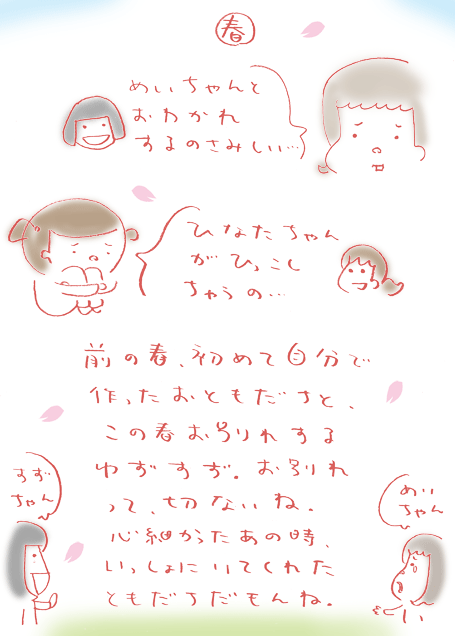 春
めいちゃんと
おわかれ
するのさみしい…
ひなたちゃん
がひっこし
ちゃうの…
前の春、初めて自分で
作ったおともだちと、
この春お別れする
わずすず。お別れ
って、切ないね。
心細かったあの時、
いっしょにいてくれた
ともだちだもんね。
すず
ちゃん
めい
ちゃん